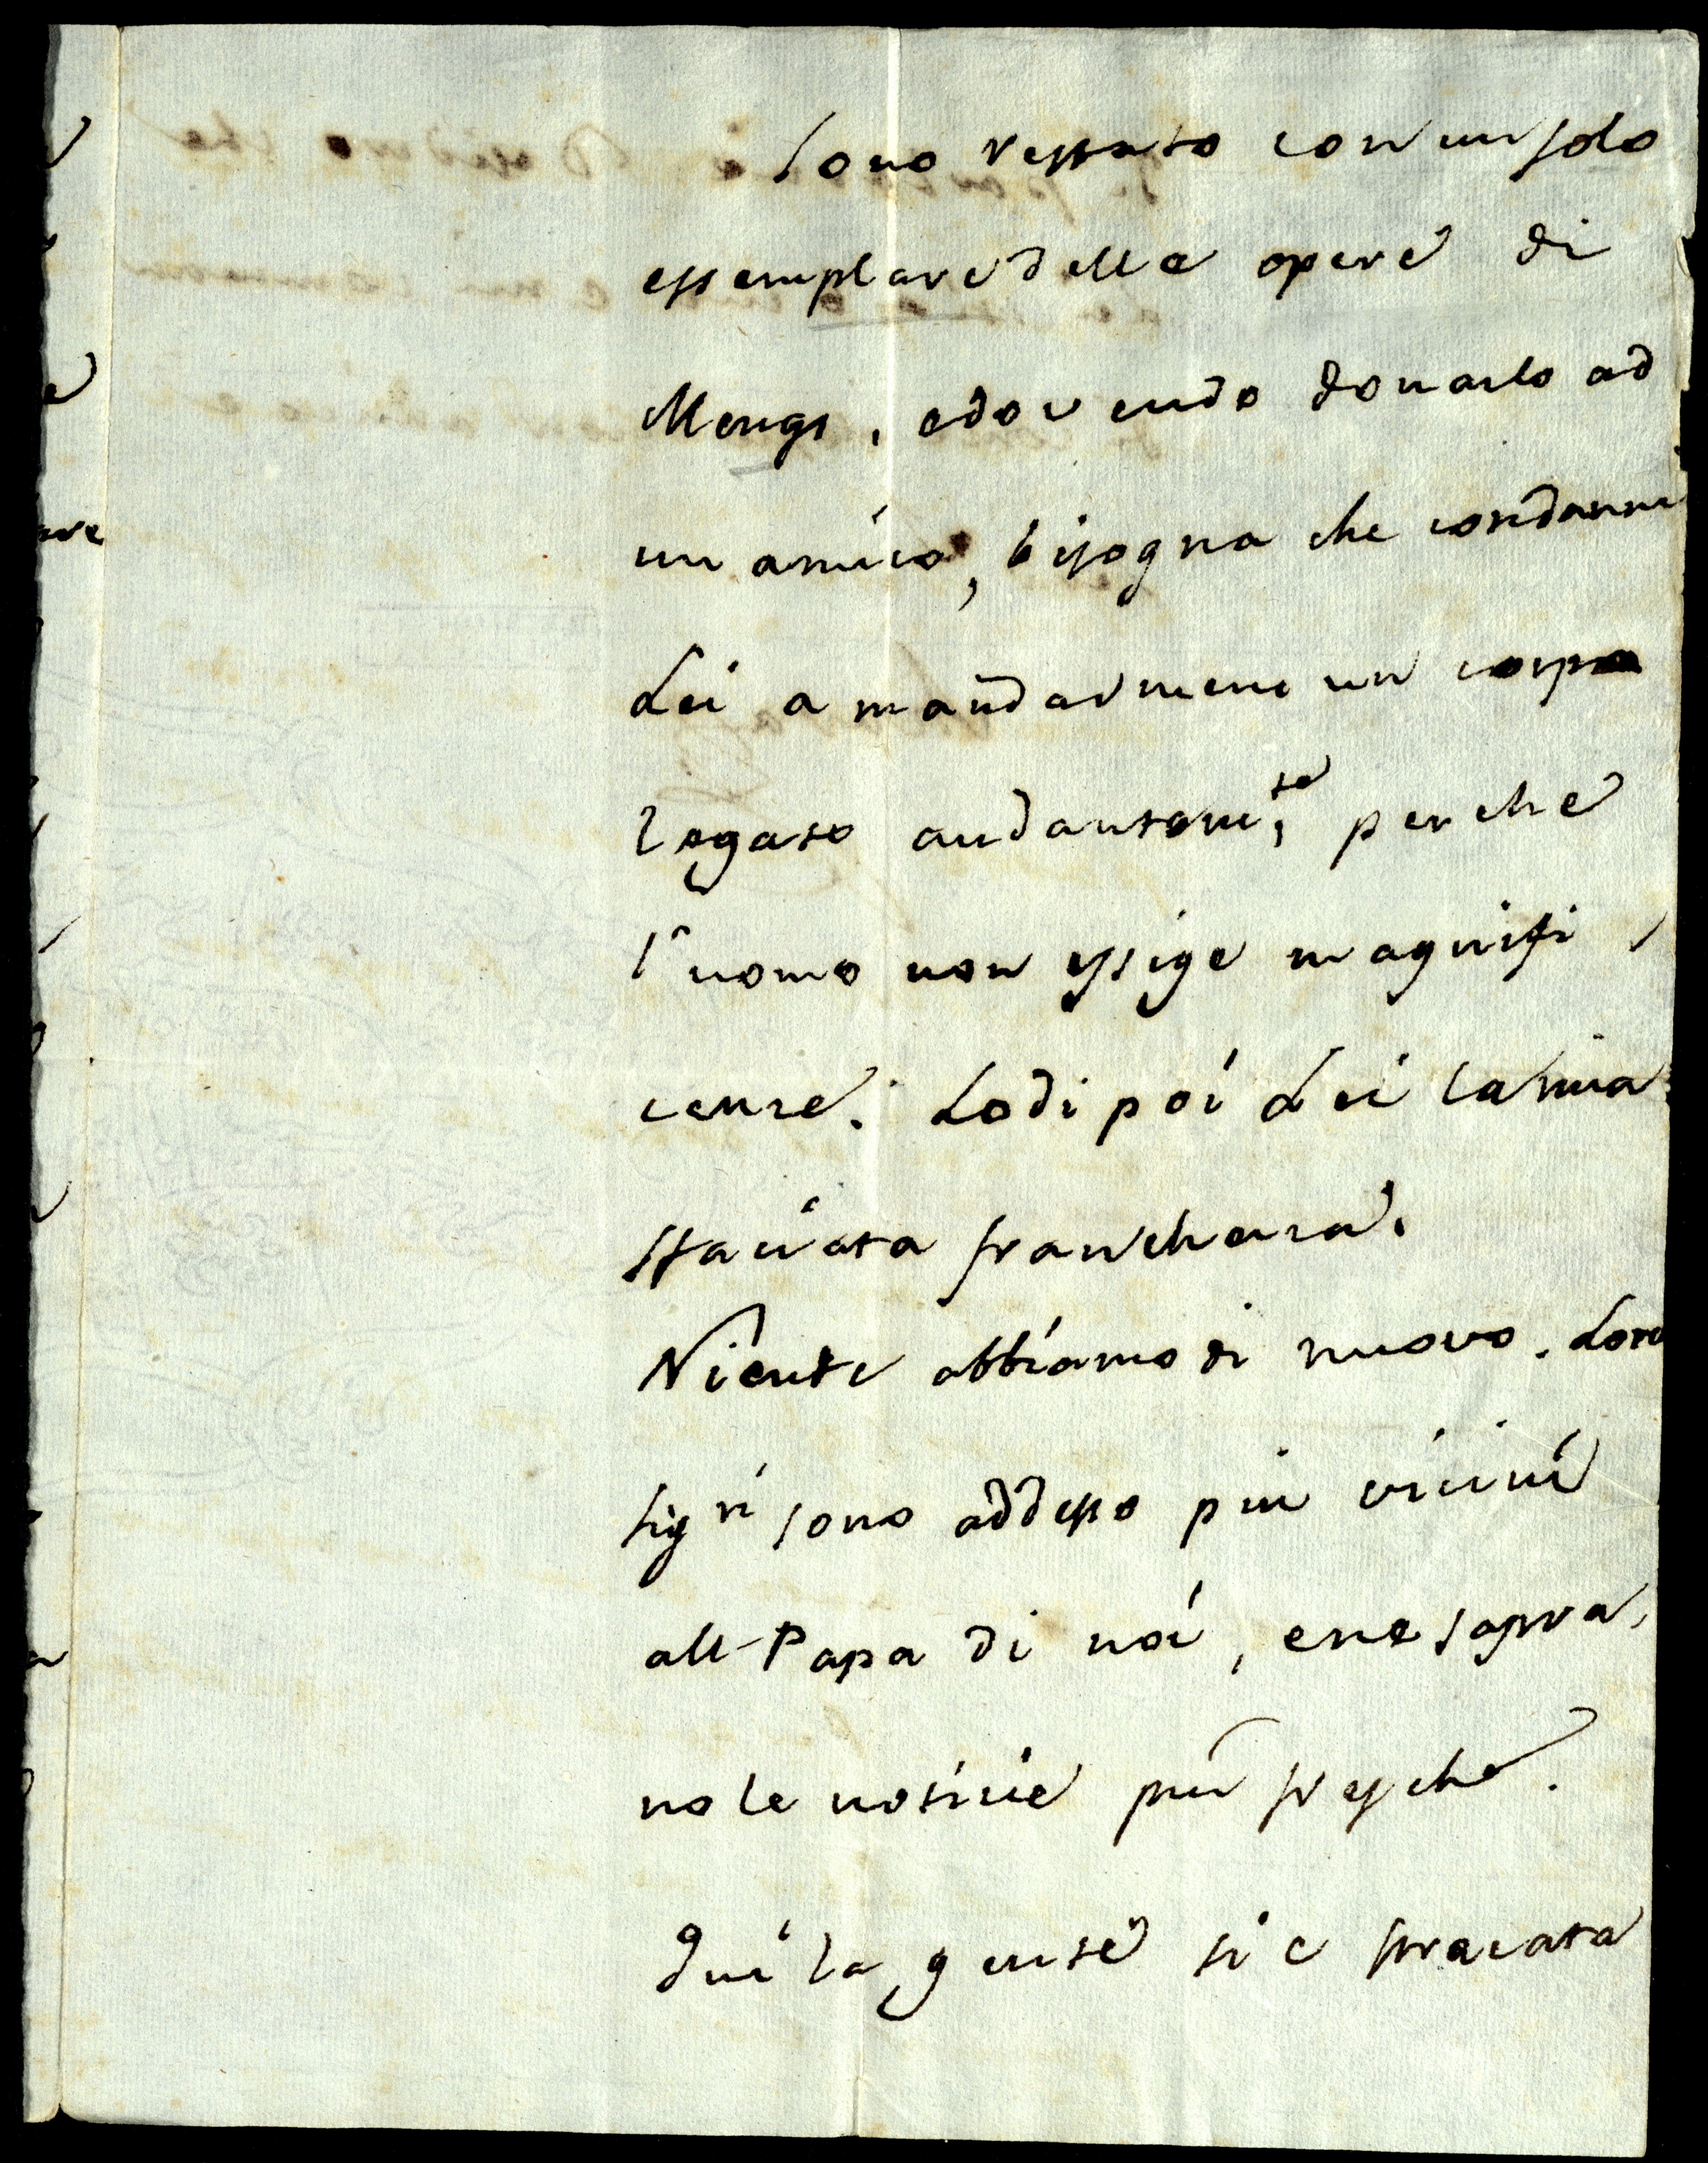 Sono restato con un solo
essemplare delle opere di
Mengs, e dovendo donarlo ad
un amico, bisogna che condanni
Lei a mandarmene un corpo
legato andantem.te, perche
l'uomo non essige magnifi,
cenze. Lodi poi Lei la mia
sfaciata franchezza.
Niente abbiamo di nuovo. Loro
Sig.ri sono addesso piu vicini
all Papa di noi, e ne sapra,
no le noticie più fresche.
Qui la gente si è